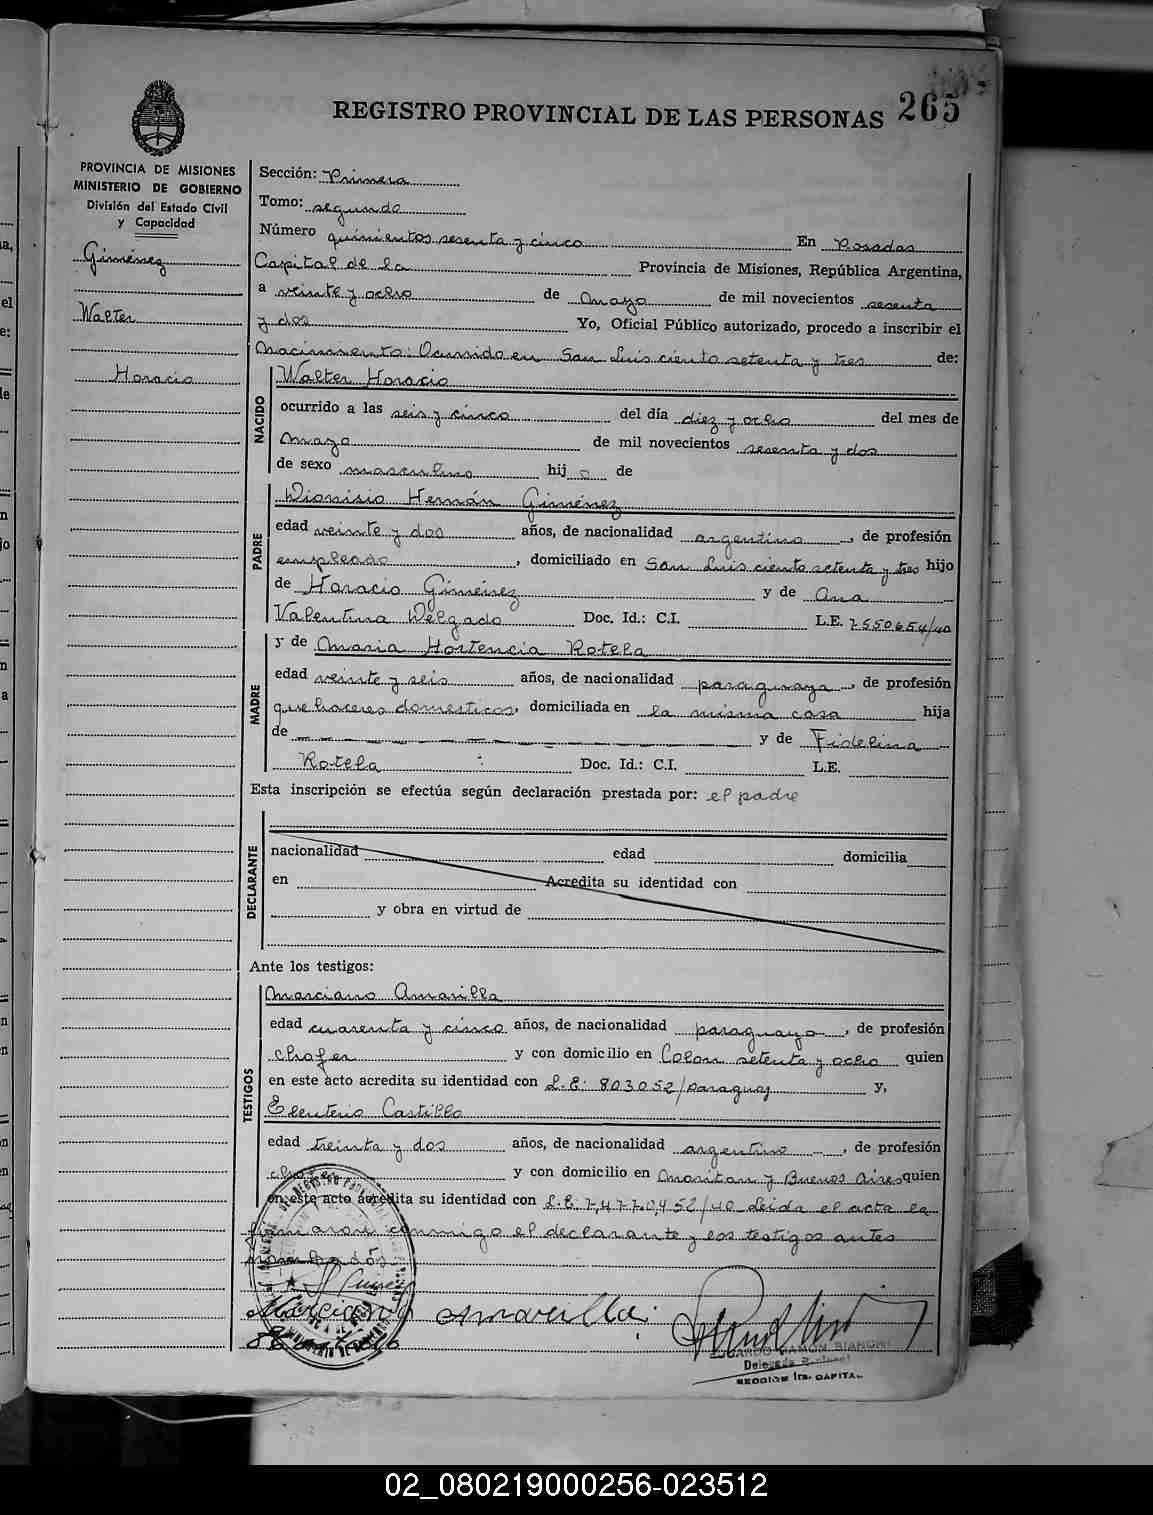 REGISTRO PROVINCIAL DE LAS PERSONAS 265
PROVINCIA DE MISIONES
MINISTERIO DE GOBIERNO
División del Estado Civil
y Capacidad
Giménez
Walter
Horacio
Sección: Primera
Tomo: segundo
Número quinientos sesenta y cinco En Posadas
Capital de la Provincia de Misiones, República Argentina,
a veinte y ocho de Mayo de mil novecientos sesenta
y dos Yo, Oficial Público autorizado, procedo a inscribir el
Nacimiento: Ocurrido en San Luis ciento setenta y tres de:
NACIDO
Walter Horacio
ocurrido a las seis y cinco del día diez y ocho del mes de
Mayo de mil novecientos sesenta y dos
de sexo masculino hij o de
PADRE
Dionisio Hernán Giménez
edad veinte y dos años, de nacionalidad argentino, de profesión
empleado, domiciliado en San Luis ciento setenta y tres hijo
de Horacio Giménez y de Ana
Valentina Delgado Doc. Id.: C.I. L.E. 7550654/40
MADRE
y de Maria Hortencia Rotela
edad veinte y seis años, de nacionalidad paraguaya, de profesión
quehaceres domesticos, domiciliada en la misma casa hija
de y de Fidelina
Rotela Doc. Id.: C.I. L.E.
Esta inscripción se efectúa según declaración prestada por: el padre
DECLARANTE
nacionalidad edad domicilia
en Acredita su identidad con
y obra en virtud de
Ante los testigos:
TESTIGOS
Marciano Amarilla
edad cuarenta y cinco años, de nacionalidad paraguayo, de profesión
chofer y con domicilio en Colon setenta y ocho quien
en este acto acredita su identidad con L.E: 803052/paraguay y,
Eleuterio Castillo
edad treinta y dos años, de nacionalidad argentino, de profesión
chofer y con domicilio en y Buenos Aires quien
en este acto acredita su identidad con L.E: 7,477.0,452/40 Leida el acta la
firmaron conmigo el declarante y los testigos antes
nombrados
Marciano Amarilla
EDUARDO RAMON BIANCHI
Delegado
SECCION 1ra. CAPITAL
02_080219000256-023512